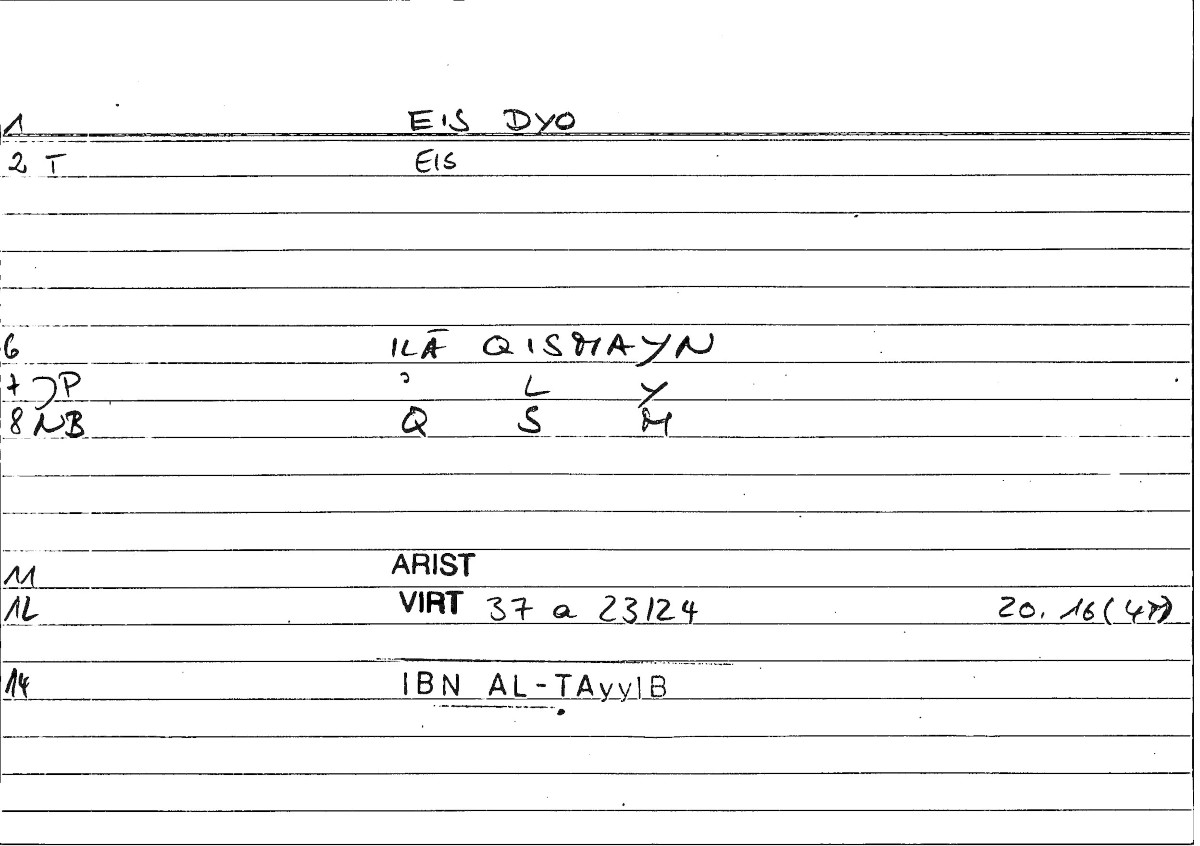 1 EIS DYO
2 T EIS
6 ILĀ QISMAYN
7 JP ʾ L Y
8 NB Q S M
11 ARIST
12 VIRT 37 a 23/24 20. 16(47)
14 IBN AL-ṬAyyIB